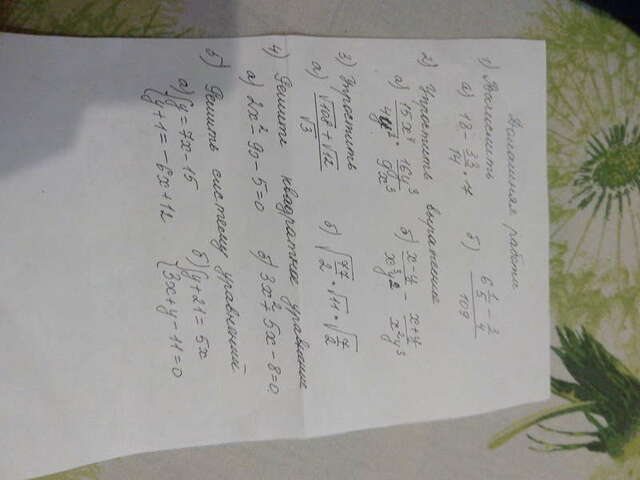 Домашняя работа
1) Вычислить
а) 18 - 33/14 · 7 б) (6 1/5 - 3/4)/109
2) Упростить выражение
а) 15x⁴/4y² · 16y³/9x³ б) (x-y)/x³y² - (x+y)/x²y³
3) Упростить
а) (√108 + √12)/√3 б) √(77/2) · √11 · √(7/2)
4) Решить квадратные уравнение
а) 2x² - 9x - 5 = 0 б) 3x² + 5x - 8 = 0
5) Решить систему уравнений
а) { y = 7x - 15 б) { y + 21 = 5x
{ y + 1 = -6x + 12 { 3x + y - 11 = 0